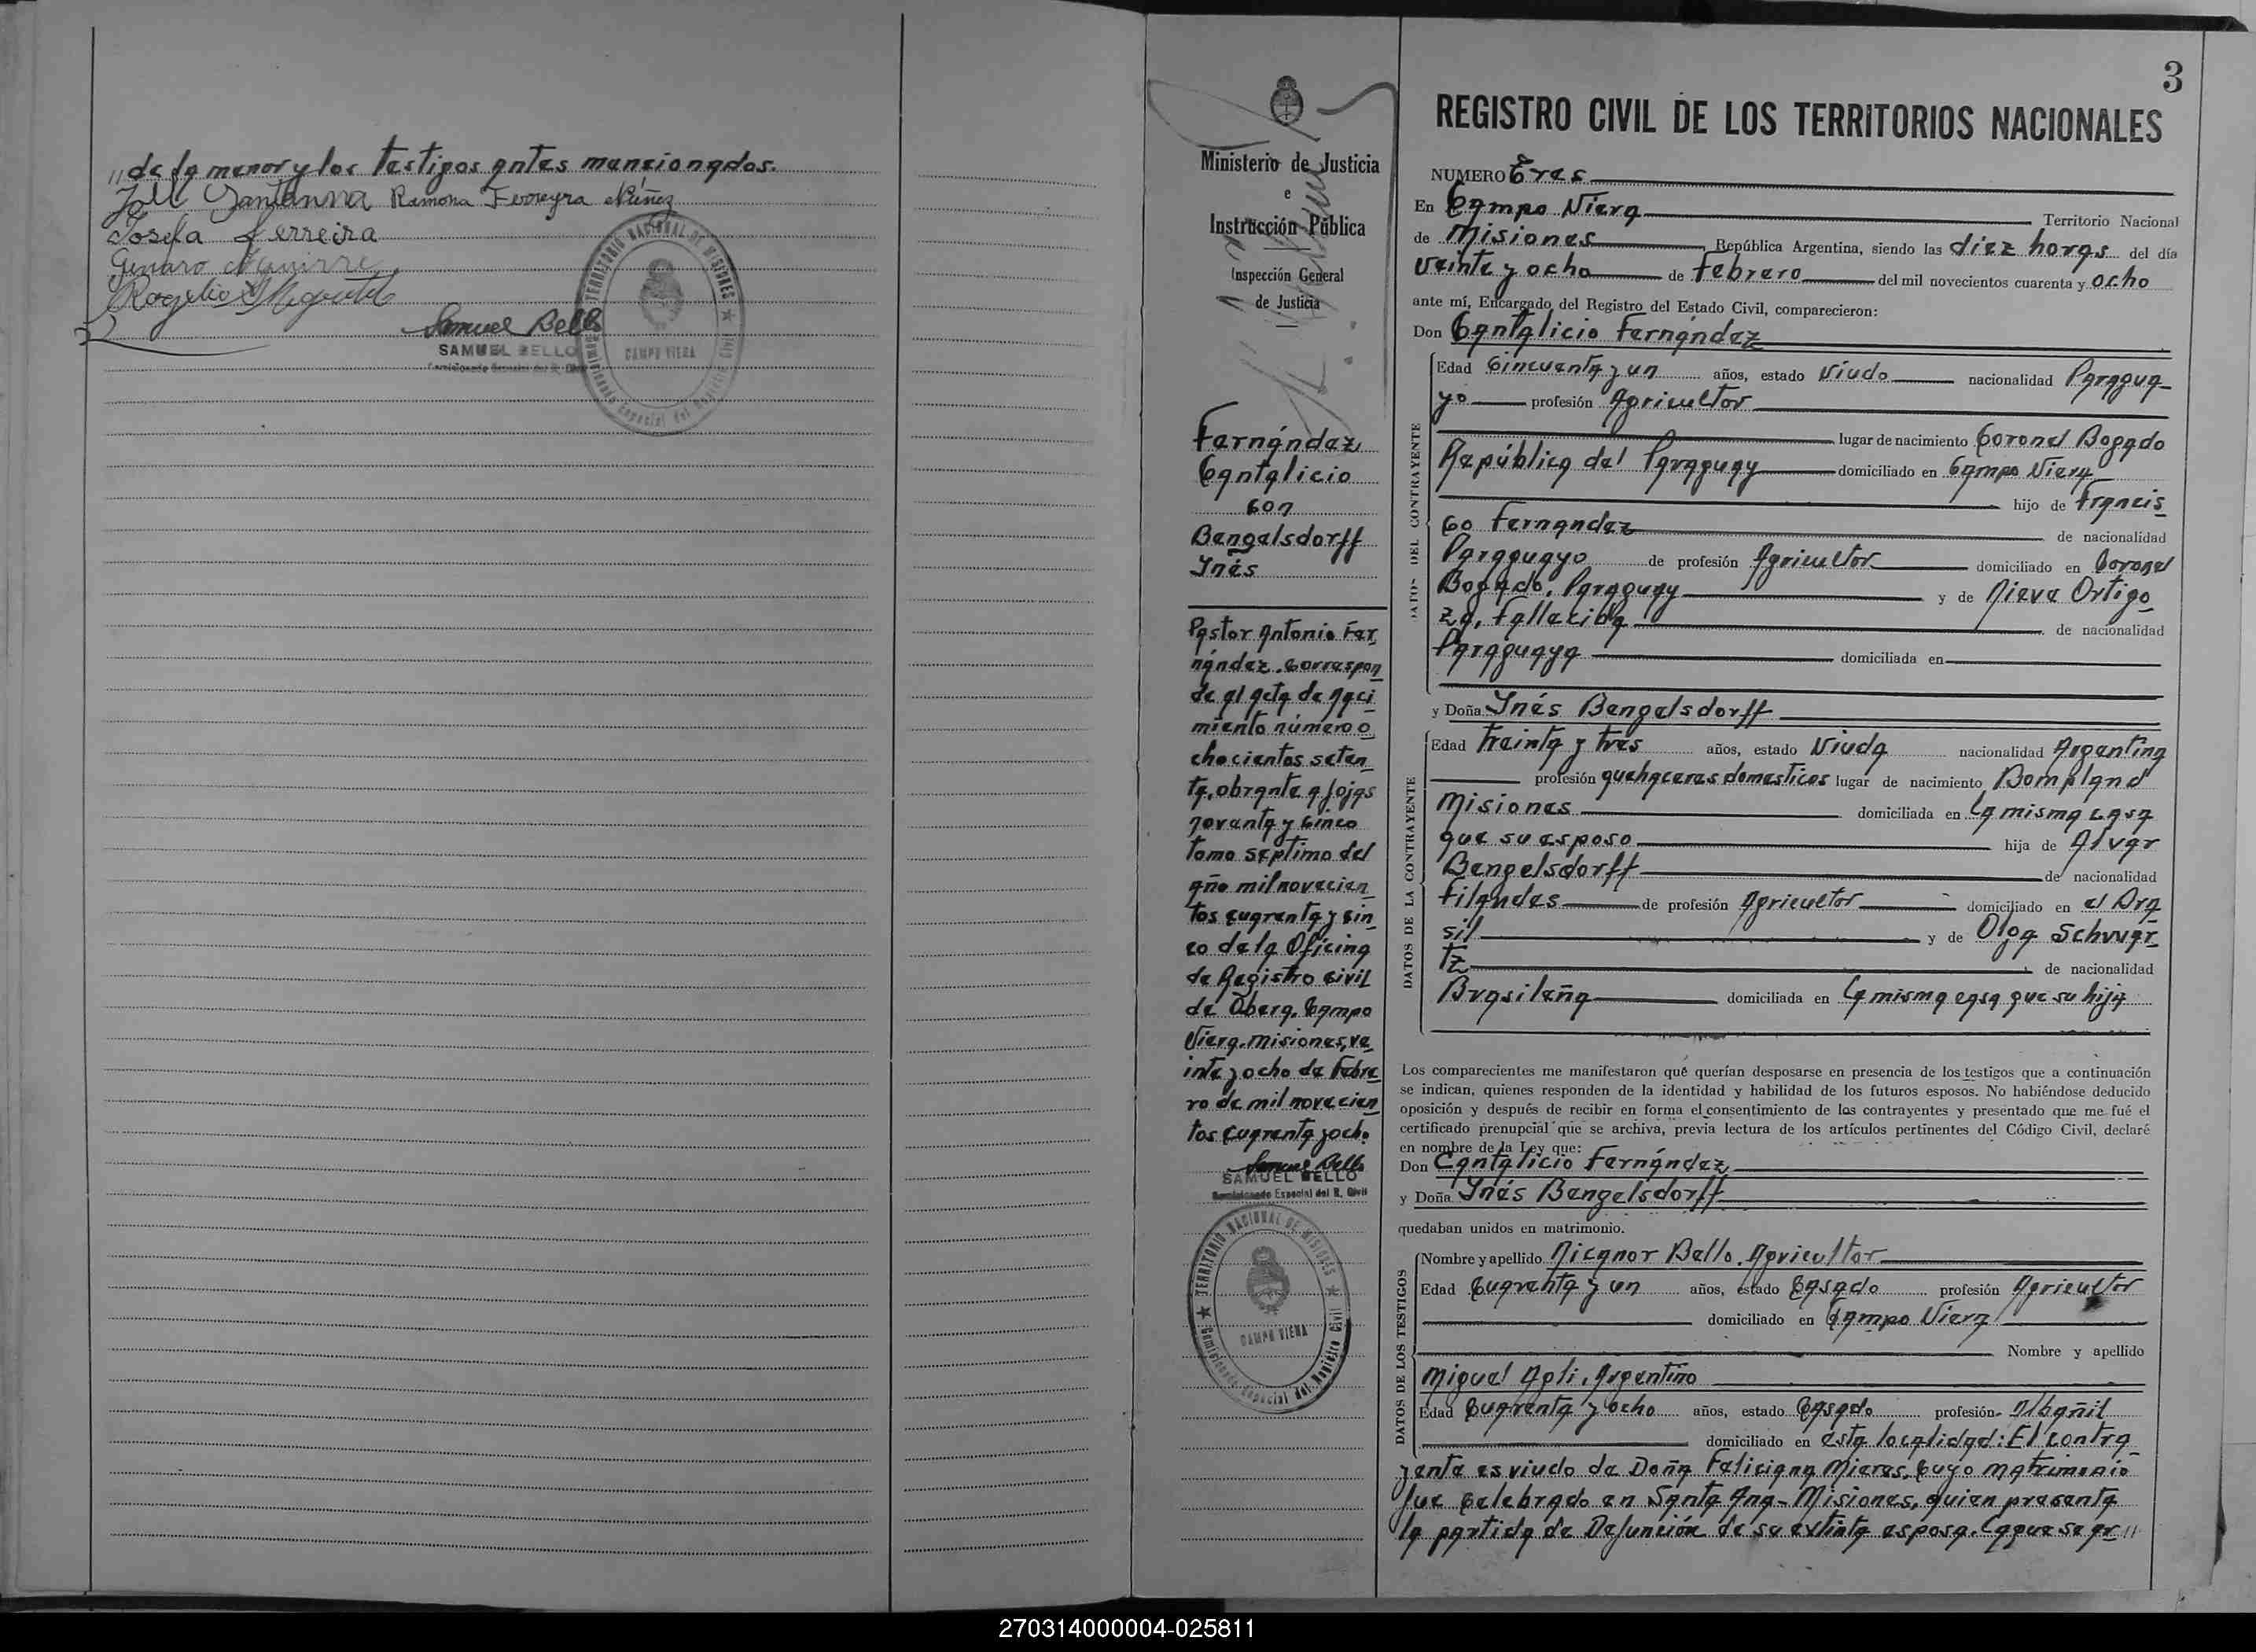 // de la menor y los testigos antes mensionados.
Santanna Ramona Ferreyra Núñez
Josefa Ferreira
Genaro
Rogelio
Samuel Bello
SAMUEL BELLO
Comisionado Especial del R. Civil
TERRITORIO NACIONAL DE MISIONES
CAMPO VIERA
Comisionado Especial del Registro Civil
Ministerio de Justicia
e
Instrucción Pública
Inspección General
de Justicia
Fernández
Cantalicio
con
Bengelsdorff
Inés
Pastor Antonio Fer
nández. Correspon
de al acta de naci
miento número o
chocientos seten
ta, obrante a fojas
noventa y cinco
tomo septimo del
año mil novecien
tos cuarenta y cin
co de la Oficina
de Registro Civil
de Oberá. Campo
Viera. Misiones, ve
inte y ocho de Febre
ro de mil novecien
tos cuarenta y ocho
Samuel Bello
SAMUEL BELLO
Comisionado Especial del R. Civil
TERRITORIO NACIONAL DE MISIONES
CAMPO VIERA
Comisionado Especial del Registro Civil
3
REGISTRO CIVIL DE LOS TERRITORIOS NACIONALES
NUMERO Tres
En Campo Viera Territorio Nacional
de Misiones, República Argentina, siendo las diez horas del día
veinte y ocho de febrero del mil novecientos cuarenta y ocho
ante mí, Encargado del Registro del Estado Civil, comparecieron:
Don Cantalicio Fernández
DATOS DEL CONTRAYENTE
Edad Cincuenta y un años, estado Viudo nacionalidad Paragua-
yo profesión Agricultor
lugar de nacimiento Coronel Bogado
República del Paraguay domiciliado en Campo Viera
hijo de Francis
co Fernandez de nacionalidad
Paraguayo de profesión Agricultor domiciliado en Coronel
Bogado. Paraguay y de Nieve Ortigo
za, Fallecida de nacionalidad
Paraguaya domiciliada en
y Doña Inés Bengelsdorff
DATOS DE LA CONTRAYENTE
Edad treinta y tres años, estado Viuda nacionalidad Argentina
profesión quehaceres domesticos lugar de nacimiento Bompland
Misiones domiciliada en La misma casa
que su esposo hija de Alvar
Bengelsdorff de nacionalidad
Filandes de profesión Agricultor domiciliado en el Bra
sil y de Olga Schvvar
tz de nacionalidad
Brasileña domiciliada en La misma casa que su hija
Los comparecientes me manifestaron qué querían desposarse en presencia de los testigos que a continuación
se indican, quienes responden de la identidad y habilidad de los futuros esposos. No habiéndose deducido
oposición y después de recibir en forma el consentimiento de los contrayentes y presentado que me fué el
certificado prenupcial que se archiva, previa lectura de los artículos pertinentes del Código Civil, declaré
en nombre de la Ley que:
Don Cantalicio Fernández
y Doña Inés Bengelsdorff
quedaban unidos en matrimonio.
DATOS DE LOS TESTIGOS
Nombre y apellido Nicanor Bello. Agricultor
Edad Cuarenta y un años, estado Casado profesión Agricultor
domiciliado en Campo Viera
Nombre y apellido
Miguel Apli, Argentino
Edad Cuarenta y ocho años, estado Casado profesión Albañil
domiciliado en esta localidad: El contra
yente es viudo de Doña Feliciana Mieres, cuyo matrimonio
fue celebrado en Santa Ana - Misiones, quien presenta
la partida de Defunción de su extinta esposa. La que se ar //
270314000004-025811